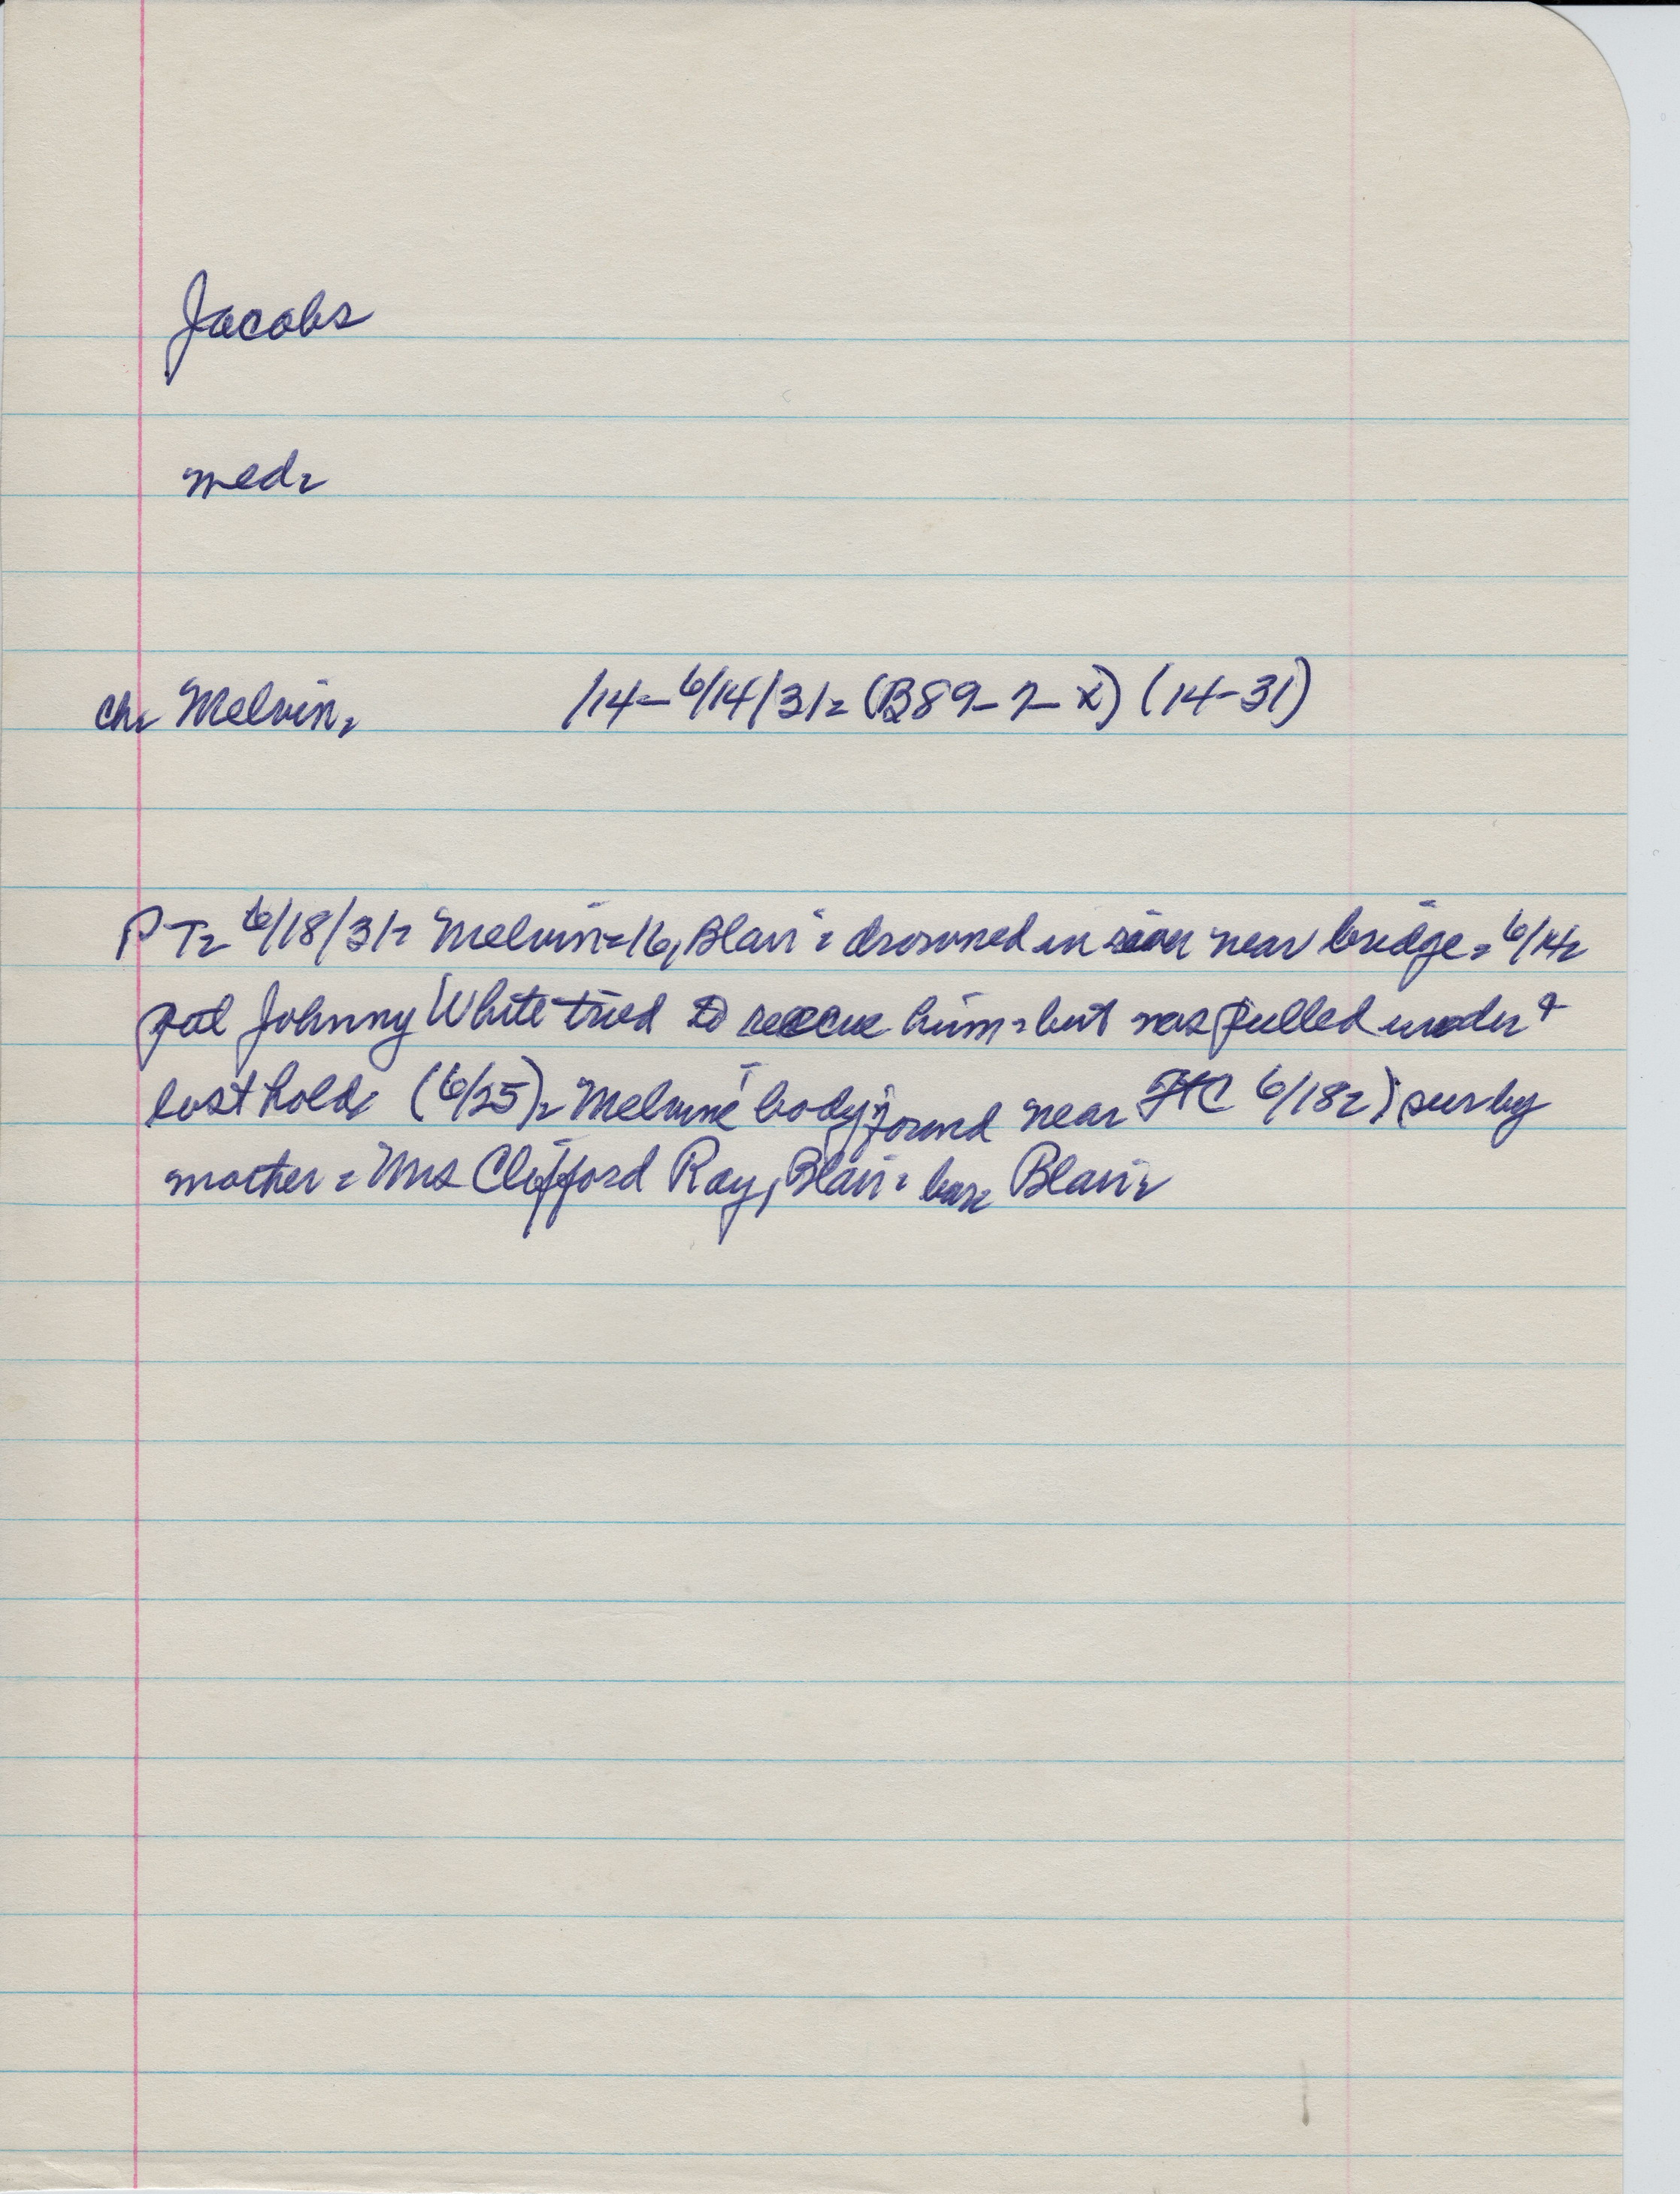 Jacobs
med-
ch- Melvin- /14- 6/14/31- (B89-7-X) (14-31)
PT- 6/18/31- Melvin-16, Blair- drowned in river near bridge- 6/14-
pal Johnny White tried to rescue him- but was pulled under &
lost hold (6/25)- Melvins' body found near FtC 6/18-) sur by
mother- Mrs Clifford Ray, Blair- bur Blair-